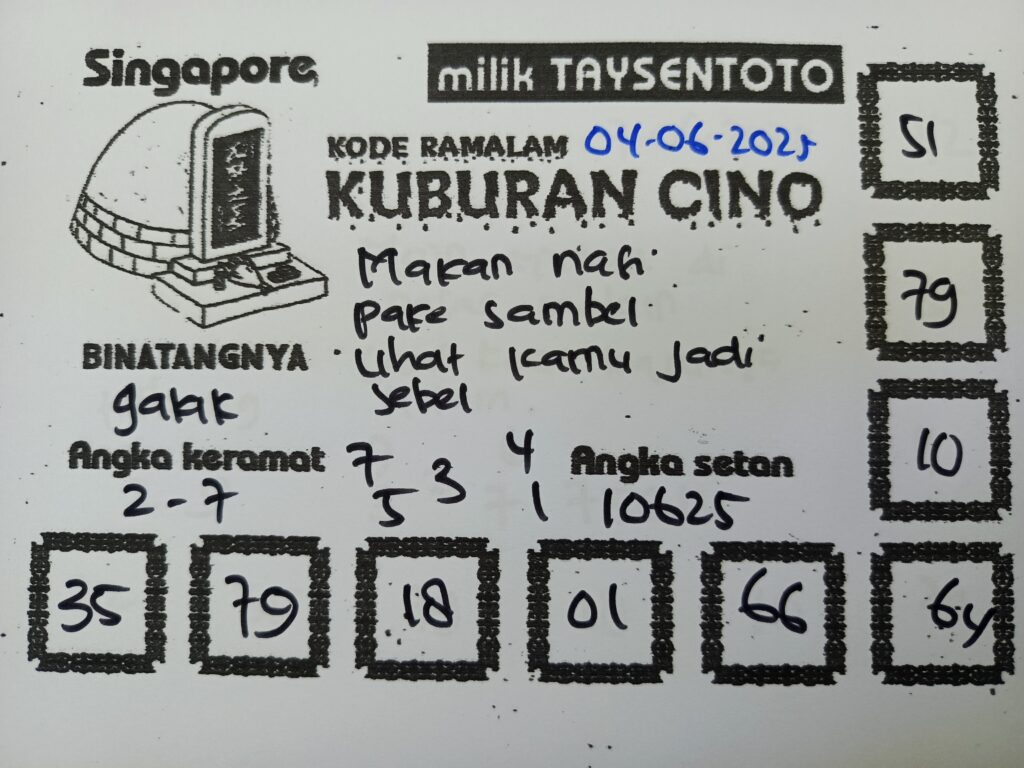 Singapore
milik TAYSENTOTO
KODE RAMALAM 04-06-2025
KUBURAN CINO
51
79
10
Makan nasi
pake sambel
lihat kamu jadi
sebel
BINATANGNYA
galak
Angka keramat
2-7
7 3 4
5 1
Angka setan
10625
35 79 18 01 66 64